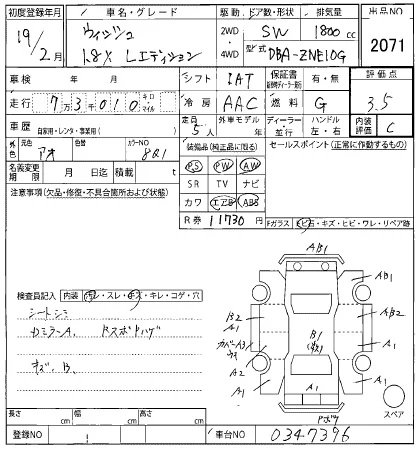 初度登録年月 車名・グレード 駆動 ドア数・形状 排気量 出品NO
19/2月 ウィッシュ 2WD SW 1800cc 2071
1.8X Lエディション 4WD 型式 DBA-ZNE10G
車検 年 月 シフト IAT 保証書 有・無 評価点
走行 73010 キロ・マイル 冷房 AAC 燃料 G 3.5
車歴 自家用・レンタ・事業用( ) 定員 5人 外車モデル 年 ディーラー・並行 ハンドル 左・右 内装評価 C
外色 元色 アオ 色替 カラーNO 8Q1 装備品(純正品に限る) セールスポイント(正常に作動するもの)
名義変更期限 月 日迄 積載 t PS PW AW
SR TV ナビ
注意事項(欠品・修復・不具合箇所および状態) カワ エアB ABS
R券 11730円 Fガラス 飛石・キズ・ヒビ・ワレ・リペア跡
AB1
AB1
検査員記入 内装 汚レ・スレ・キズ・キレ・コゲ・穴
シートシミ
B2
A1
B1
A1
A2
A1
A1
A1
A1
A1
キズ、B、
スペア
長さ cm 幅 cm 高さ cm
登録NO 車台NO 0347396